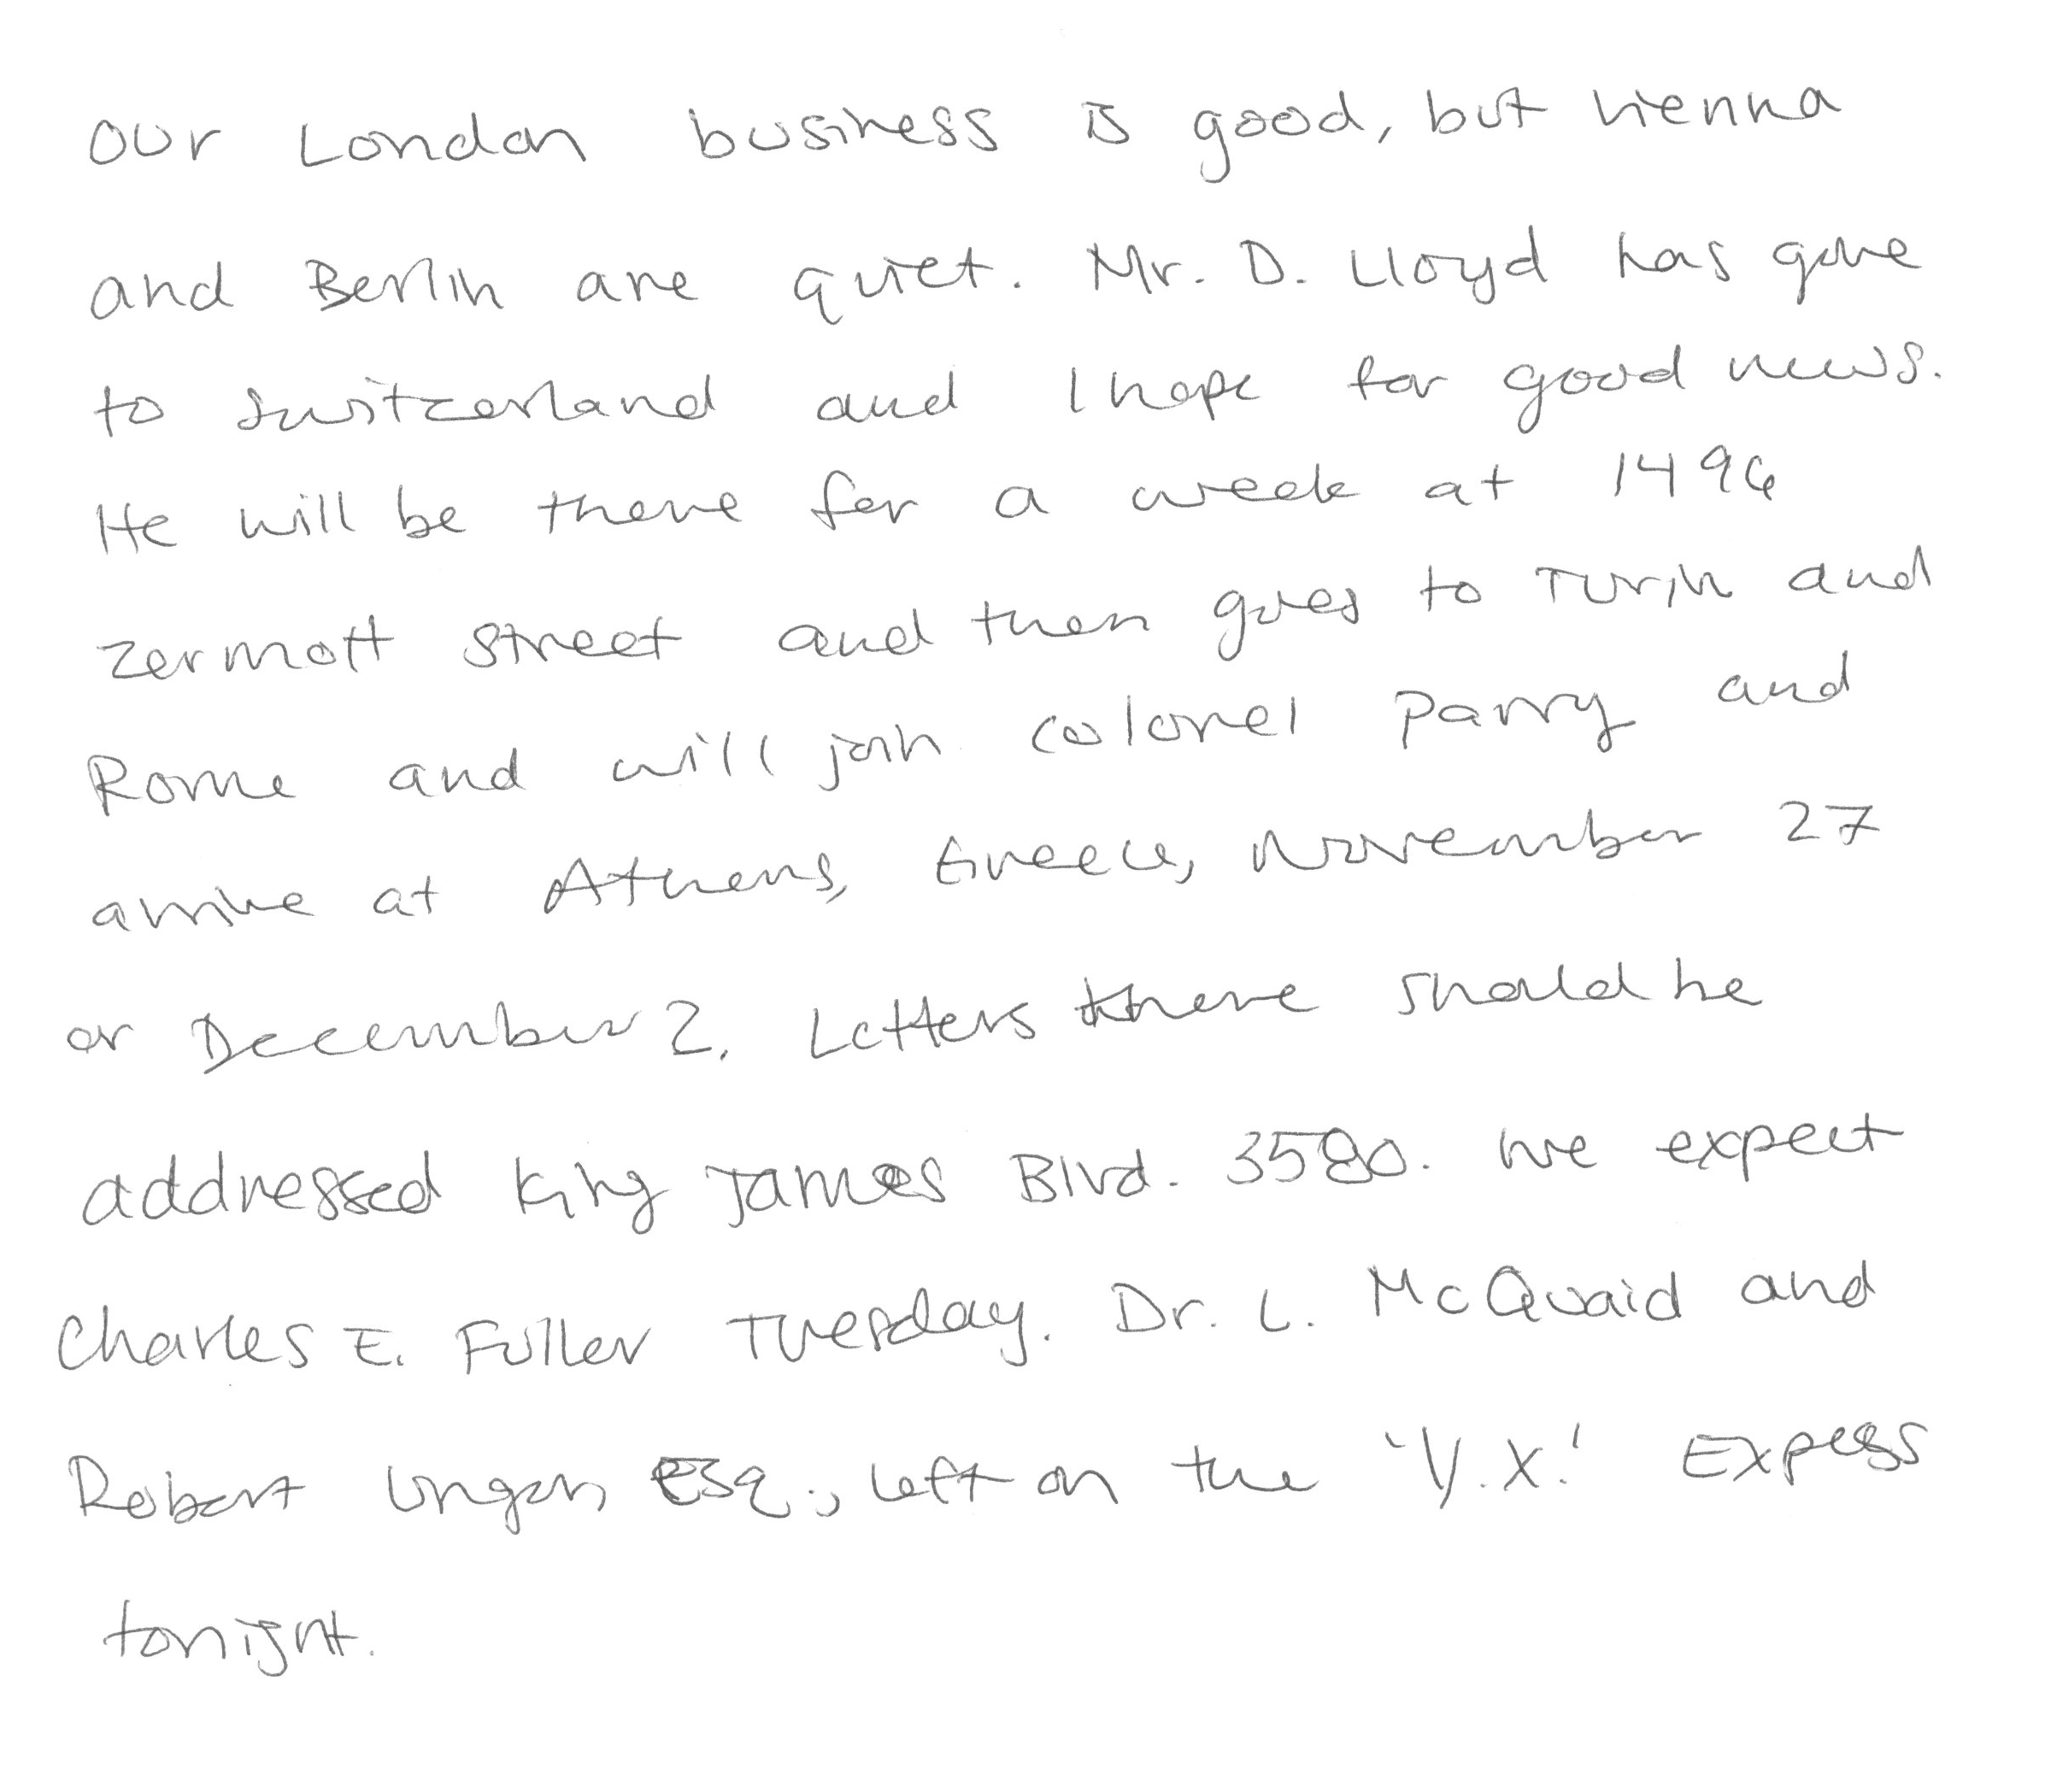 Our London business is good, but Vienna
and Berlin are quiet. Mr. D. Lloyd has gone
to Switzerland and I hope for good news.
He will be there for a week at 1496
Zermott Street and then goes to Turin and
Rome and will join Colonel Parry and
arrive at Athens, Greece, November 27
or December 2. Letters there should be
addressed King James Blvd. 3580. We expect
Charles E. Fuller Tuesday. Dr. L. McQuaid and
Robert Unger, Esq., left on the 'Y.X.' Express
tonight.